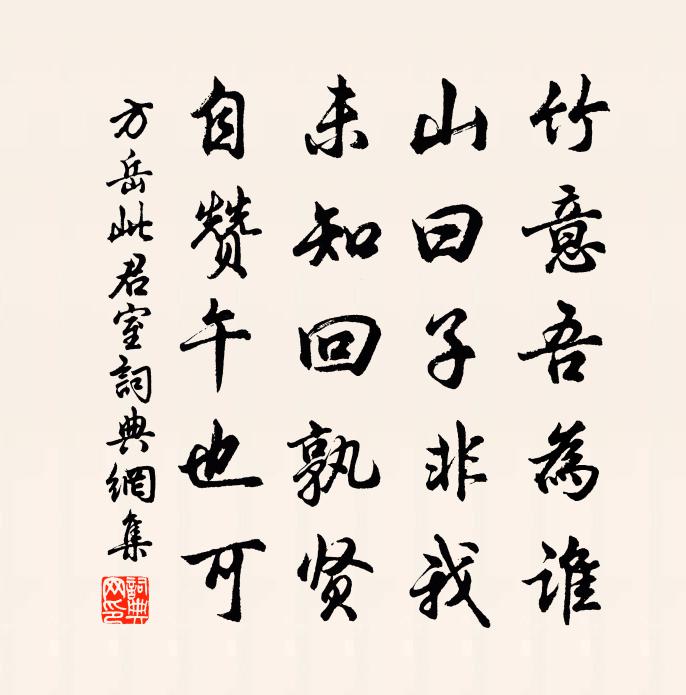 竹意吾為谁
山曰子非我
未知回孰贤
自赞午也可
方岳此君室詞典網集
詞典網印